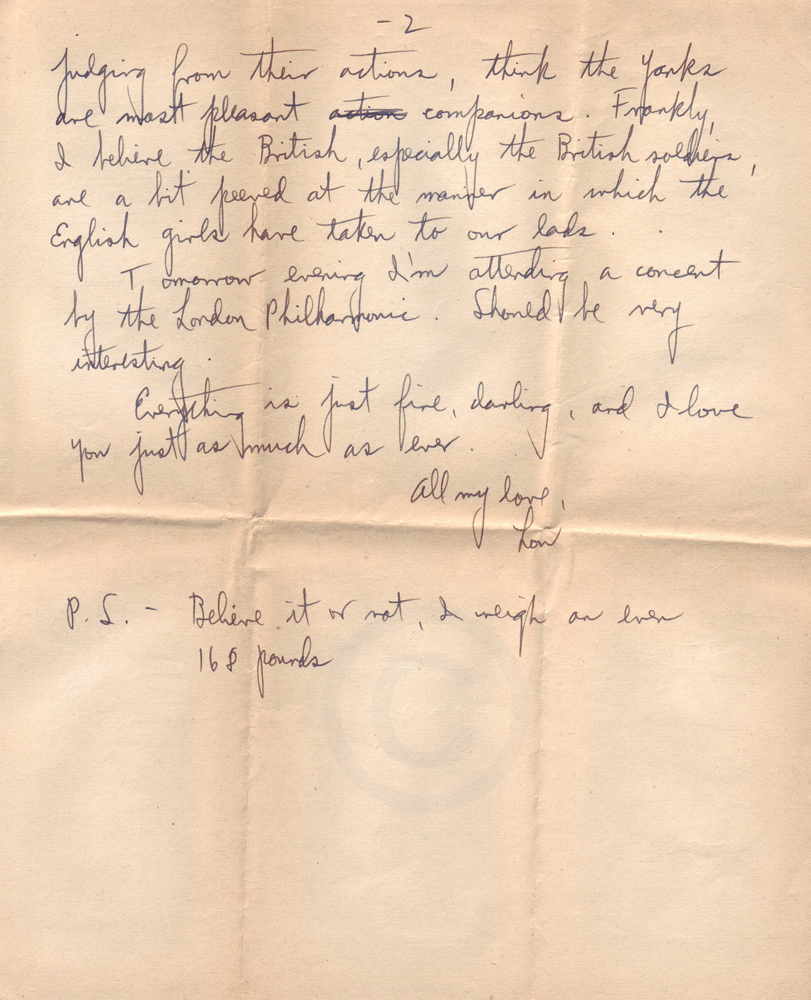 -2
judging from their actions, think the Yanks
are most pleasant action companions. Frankly,
I believe the British, especially the British soldiers,
are a bit peeved at the manner in which the
English girls have taken to our lads.
Tomorrow evening I'm attending a concert
by the London Philharmonic. Should be very
interesting.
Everything is just fine, darling, and I love
you just as much as ever.
All my love,
Lou
P.S. - Believe it or not, I weigh an even
168 pounds
©